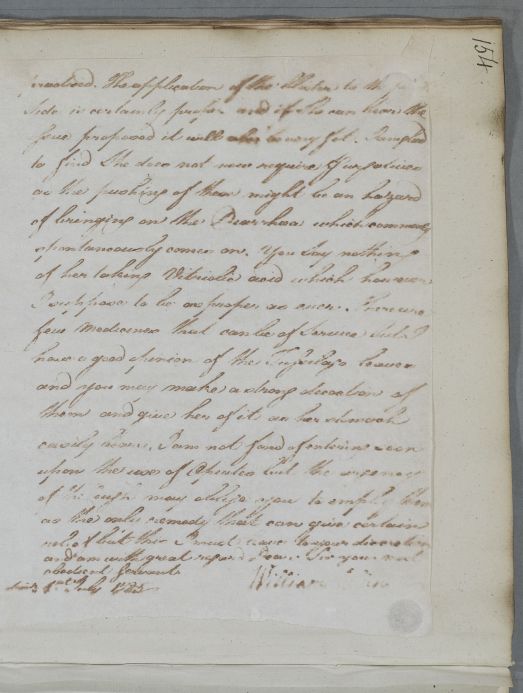 154
practised. The application of the Blister to the
Side is certainly proper and if She can bear the
Issue proposed it will also be very fit. I am glad
to find She does not now require Purgatives
as the pushing of them might be an hazard
of bringing on the Diarrhea which commonly
spontaneously comes on. You Say nothing
of her taking Vitriolic acid which however
I suppose to be as proper as ever. There are
few Medicines that can be of Service but I
have a good opinion of the Tussilago leaves
and you may make a strong decoction of
them and give her of it as her stomach
easily bears. I am not fond of entering soon
upon the use of Opiates but the urgency
of the Cough may oblige you to employ them
as the only remedy that can give certain
relief but this I must leave to your discretion
and am with great regard Dear Sir your most
obedient Servant
William
1st July 1785